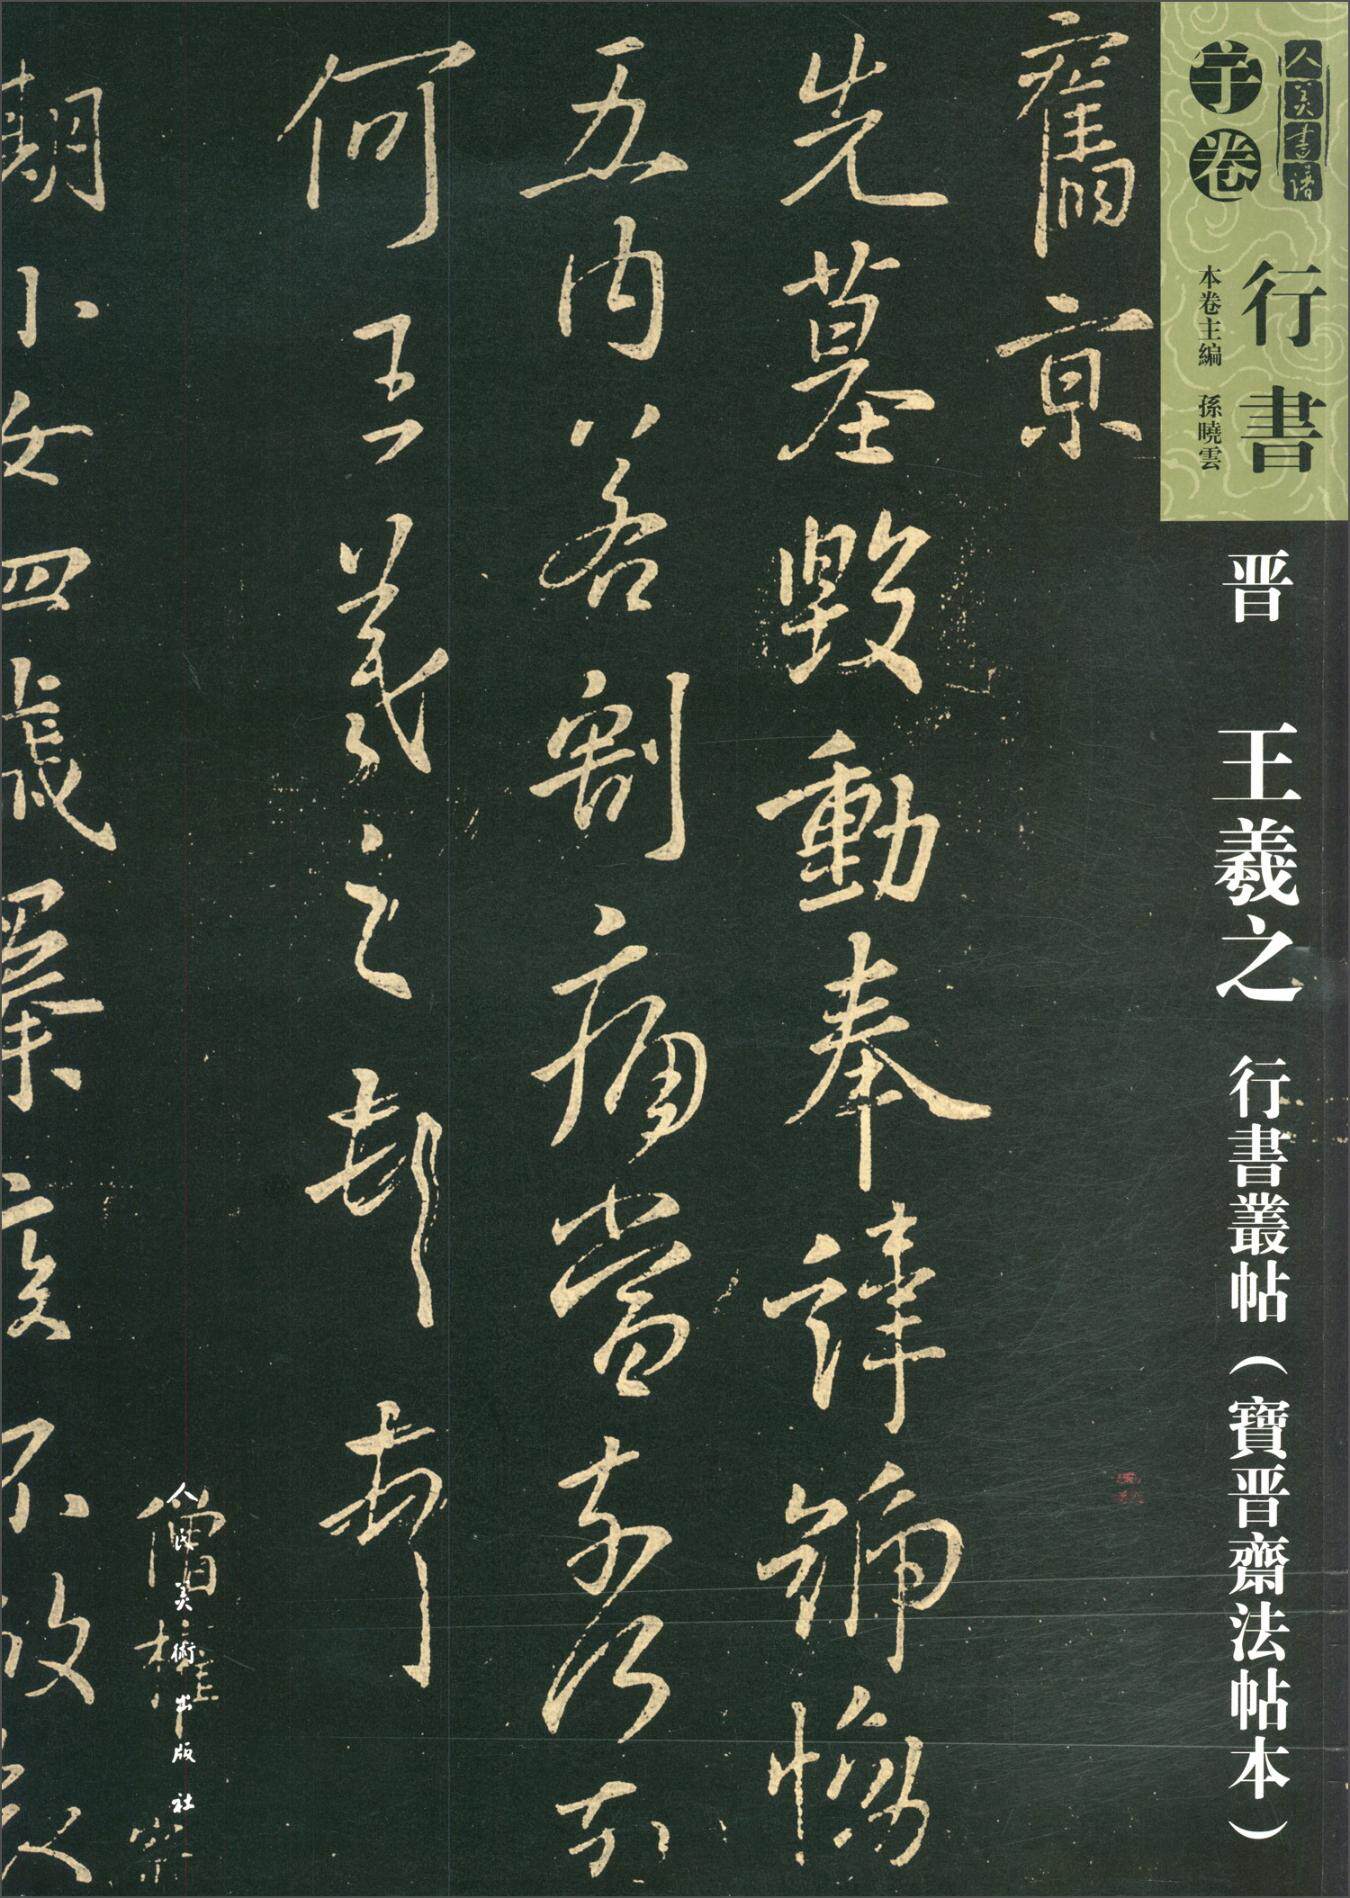 人美書譜
宇卷
行書
本卷主編 孫曉雲
晋 王羲之 行書叢帖（寶晋齋法帖本）
舊京
先墓毀動奉諱號惋
五内若割痛當奈何不
何王羲之頓首
期小女四歲暴疾不救
僧權
人民美術出版社
察